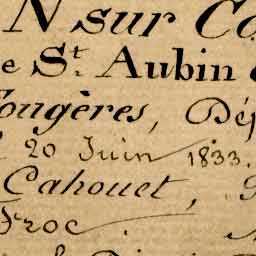 N sur
e St. Aubin
Fougères, Dép
20 Juin 1833.
Cahouet,
Froc